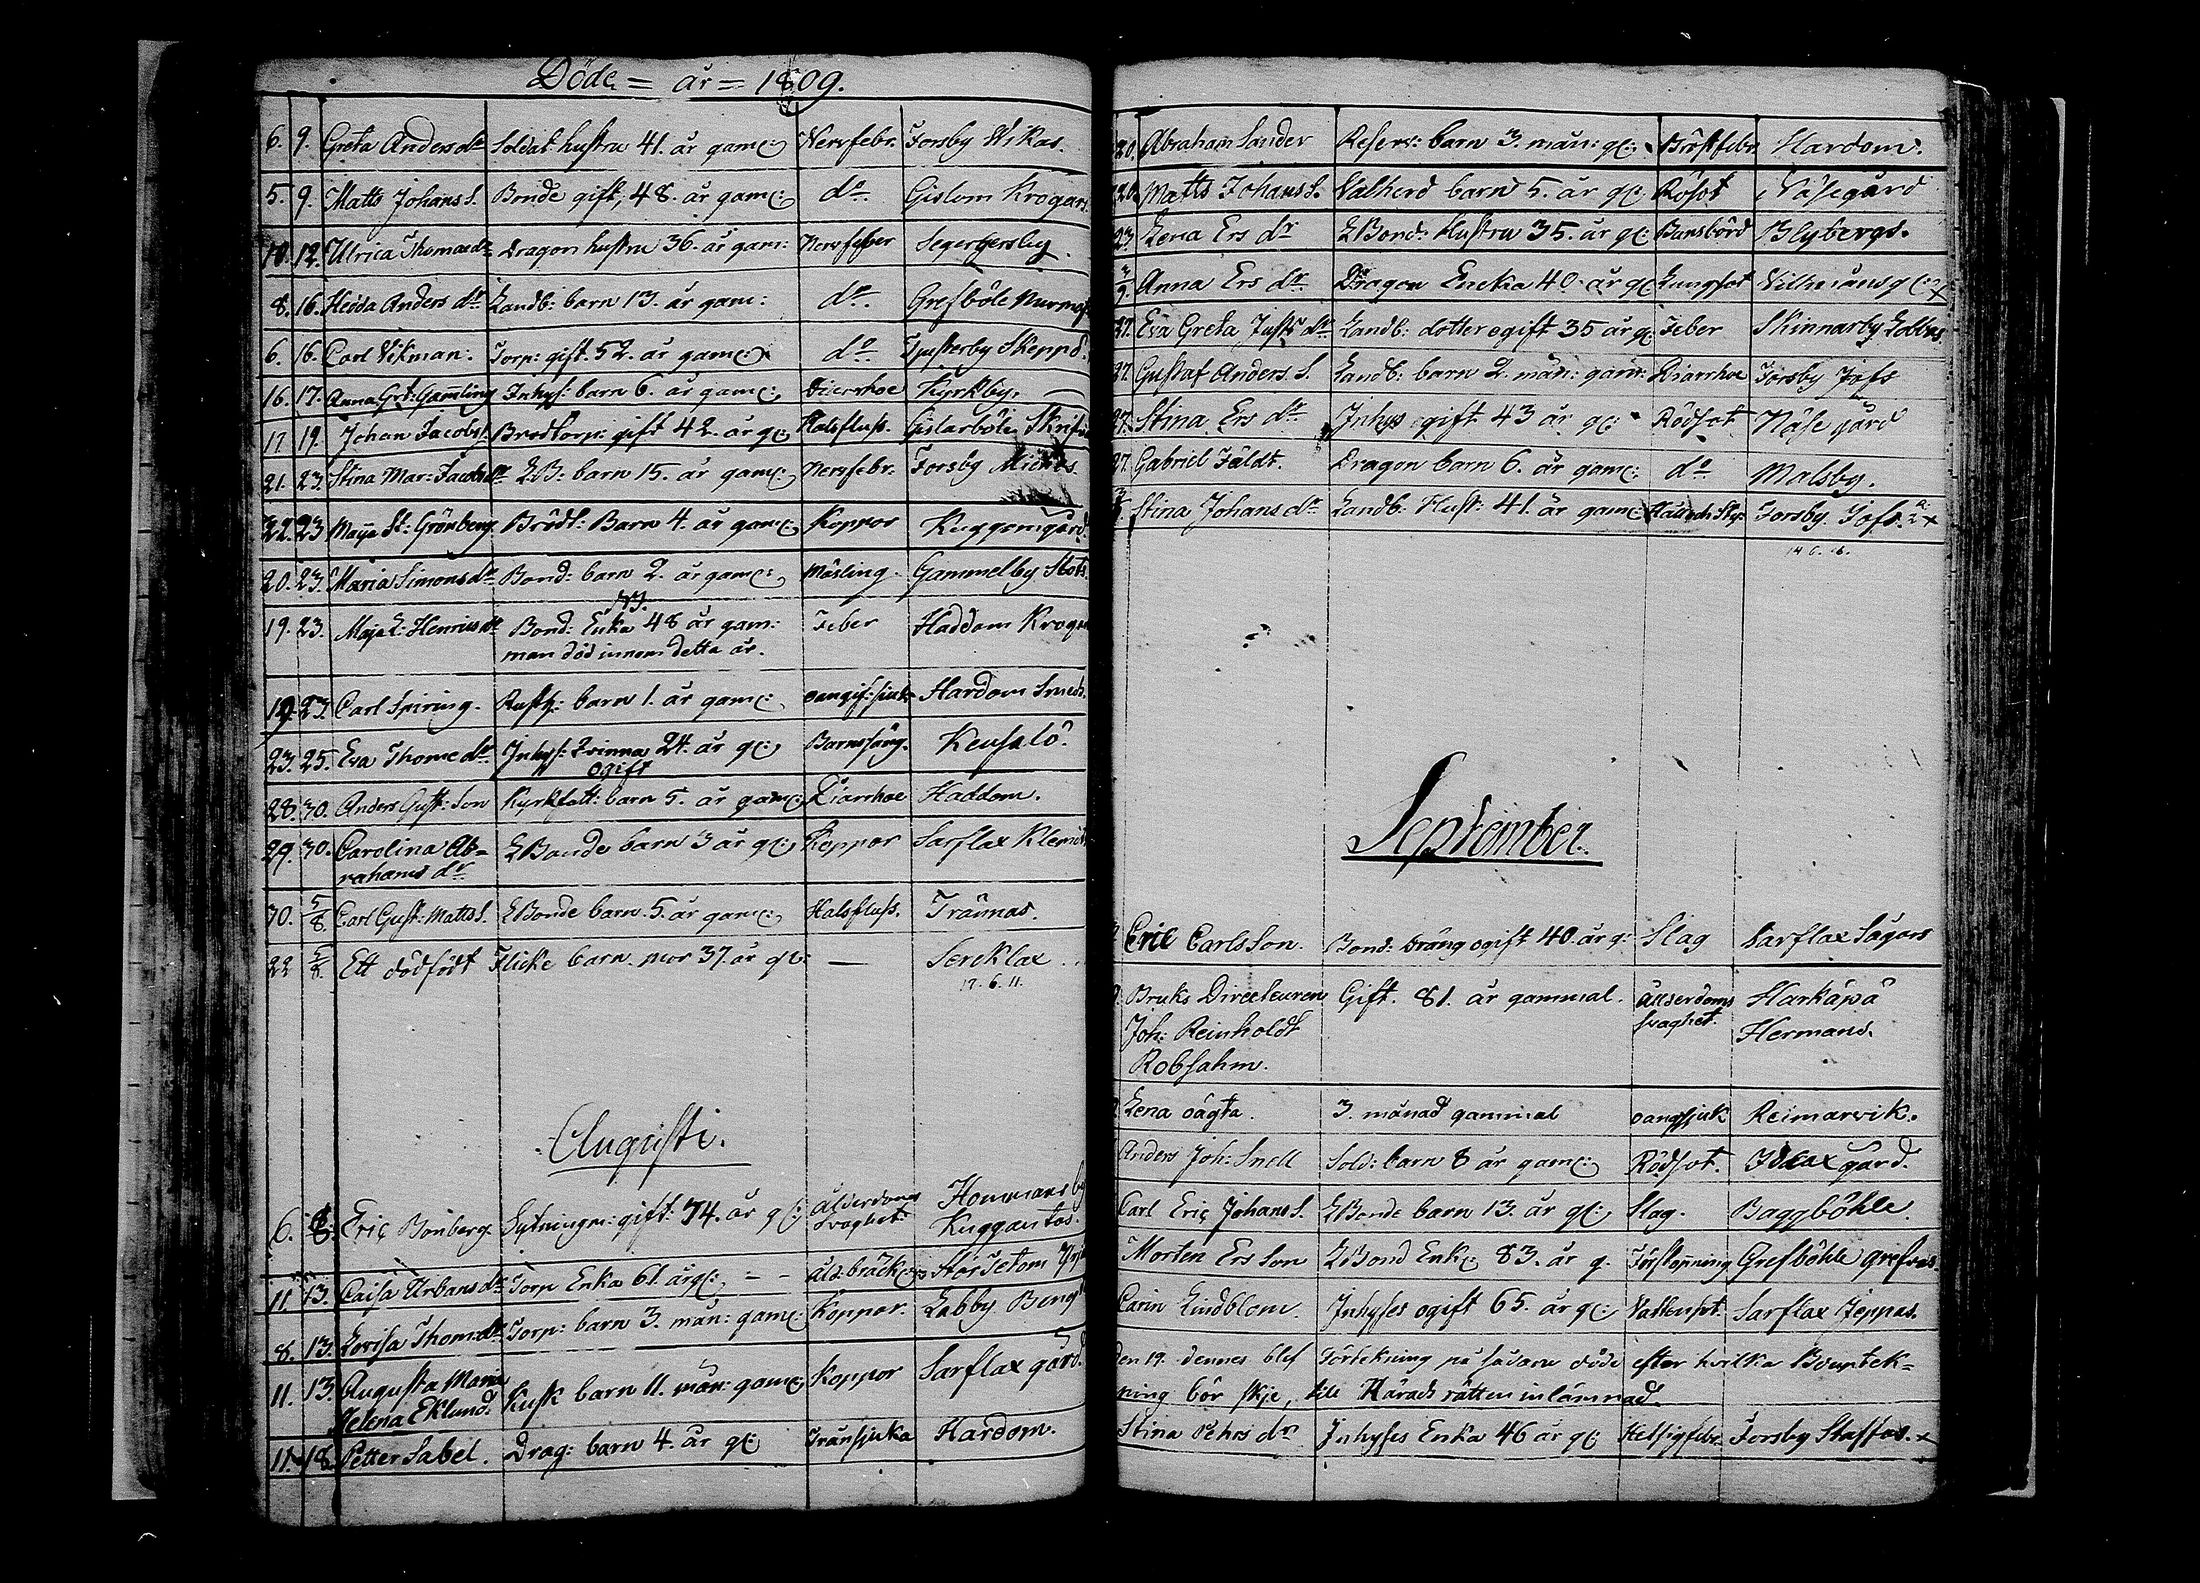 Döde = år = 1809.
6. 9. Greta Anders dr Soldat hustru 41. år gaml: Nervfebr. Forsby Vikas.
5. 9. Matts Johans S. Bonde gift, 48. år gaml: do Gislom Krogars
10. 12. Ulrica Thomasdr Dragon hustru 36. år gam: Nervfeber Segersby.
8. 16. Hedda Anders dr Landb: barn 13. år gam: do. Grefböle
6. 16. Carl Vikman. Torp: gift. 52. år gaml: do Tjusterby Skepp
16. 17. Anna Grt: Gamling Inhys: barn 6. år gaml: Diarrhoe Kyrkby.
17 19. Johan Jacobs S. Brodtorp: gift 42. år gl: Halsfluss. Gislarböle
21. 23. Stina Mar: Jacobs dr LB: barn 15. år gaml: Nervfebr. Forsby Mickos
22. 23 Maja St: Grönberg Brödt: Barn 4. år gaml: Koppor Kuggomgård.
20. 23. Maria Simons dr Bond: barn 2. år gaml: Mäsling. Gammelby Stots
19. 23. Maja L: Henrics dr Bond: Enka 48 år gam: Feber Haddom Krogars
man död innom detta år.
19. 23. Carl Spiring. Rustg: barn 1. år gaml: oangif: sjuk Hardom Smeds.
23. 25. Eva Thome dr Inhys: Qvinna 24. år gl: Barnsäng. Keusalö.
ogift
28. 30. Anders Gust: Son Kyrkfatt: barn 5. år gaml: Diarrhoe Haddom.
29. 30. Carolina Ab= LBonde barn 3 år gl: Koppor Sarflax Klemets
rahams dr
30. 5/8. Carl Gust: Matts S. LBonde barn. 5. år gaml: Halsfluss. Trännas.
22 5/8. Ett dödfödt Flicke barn. mor 37. år gl: — Serklax
17. 6. 11.
Augusti.
6. 8. Eric Bomberg Sytningm: gift: 74. år gl: Ålderdoms Hommansby
svaghet: Kuggantas.
11 13. Caisa Urbans dr Torp Enka 61. år gl: - - Åld: bräckl: Stor Tetom
8. 13. Lovisa Thom: dr Torp: barn 3. mån: gaml: Koppor. Labby Bengts
11. 13. Augusta Maria Kusk barn 11. mån: gaml: Koppor Sarflax gård.
Helena Eklund.
11. 18. Petter Sabel. Drag: barn 4. år gl: Tränsjuka Hardom.
20. Abraham Sander Reserv: barn 3. mån: gl: Bröstfebr Hardom.
20. Matts Johans S. Valherd barn 5. år gl: Rösot Näsegård
23. Lena Ers dr LBond: Hustru 35. år gl: Barnsbörd Blybergs.
Anna Ers dr Dragon Encka 40. år gl: Lungsot
27. Eva Greta Justs dr Landb: dotter ogift 35 år gl: Feber Skinnarby Lobbas
27. Gustaf Anders. S. Landb: barn 2. mån: gam: Diarrhoe Forsby Jofs
27. Stina Ers dr Inhys ogift 43 år gl: Rödsot Näse gård
27. Gabriel Fäldt. Dragon barn 6. år gaml: do Malsby.
Stina Johans dr Landb: Hust: 41. år gaml: Forsby Jofs.
14. 6. 16.
September.
Eric Carlsson. Bond: dräng ogift 40. år g: Slag Sarflax Sågars
Bruks Directeuren Gift. 81. år gammal. Ålderdoms Harkäpä
Joh: Reinholdt svaghet. Hermans.
Robsahm.
Lena oägta. 3. månad gammal oangsjuk Reimarvik.
Anders Joh: Snell Sold: barn 8 år gaml: Rödsot. Idlax gård.
Carl Eric Johans S. LBonde barn 13. år gl: Slag. Baggböhle.
Morten Ers Son LBond Enkl: 83. år g. Förstoppning Grefböhle grefvas.
Carin Lindblom. Inhyses ogift 65. år gl: Vattusot. Sarflax Jeppas.
den 19. dennes blef Förtekning på sådane döde efter hvilka Bouptek=
ning bör skje, till Härads rätten inlämnad.
Stina Pehrs dr Inhyses Enka 46 år gl: Hetsigfebr Forsby Staffas. x